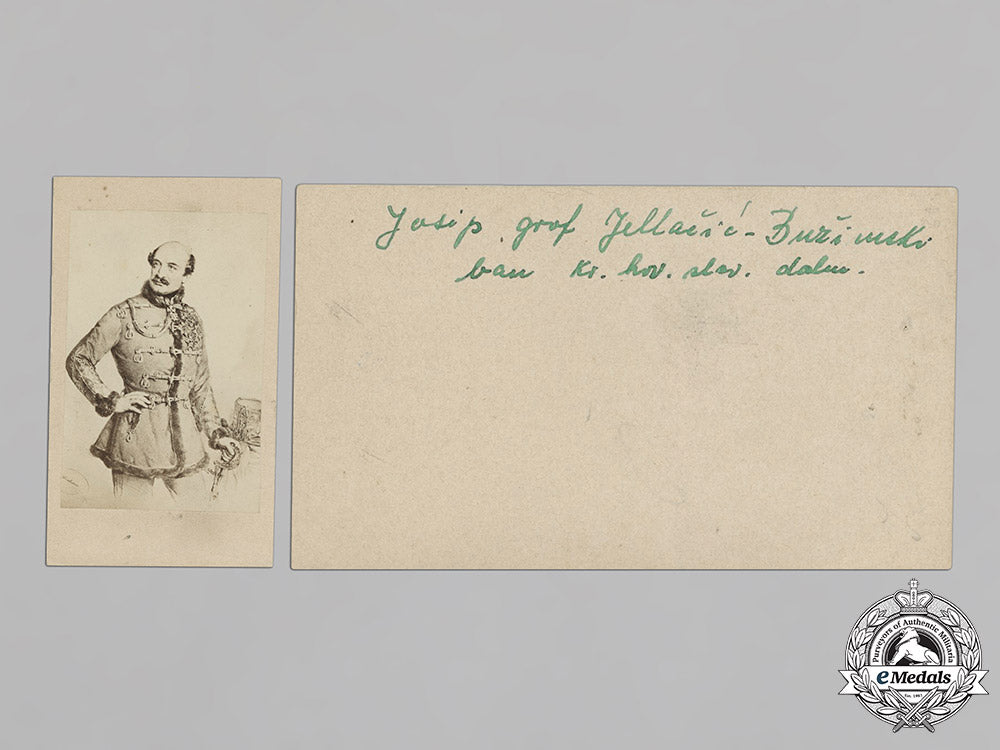 Josip grof Jellačić-Bužimski
ban kr. hrv. slav. dalm.
Purveyors of Authentic Militaria
eMedals
Est. 1967